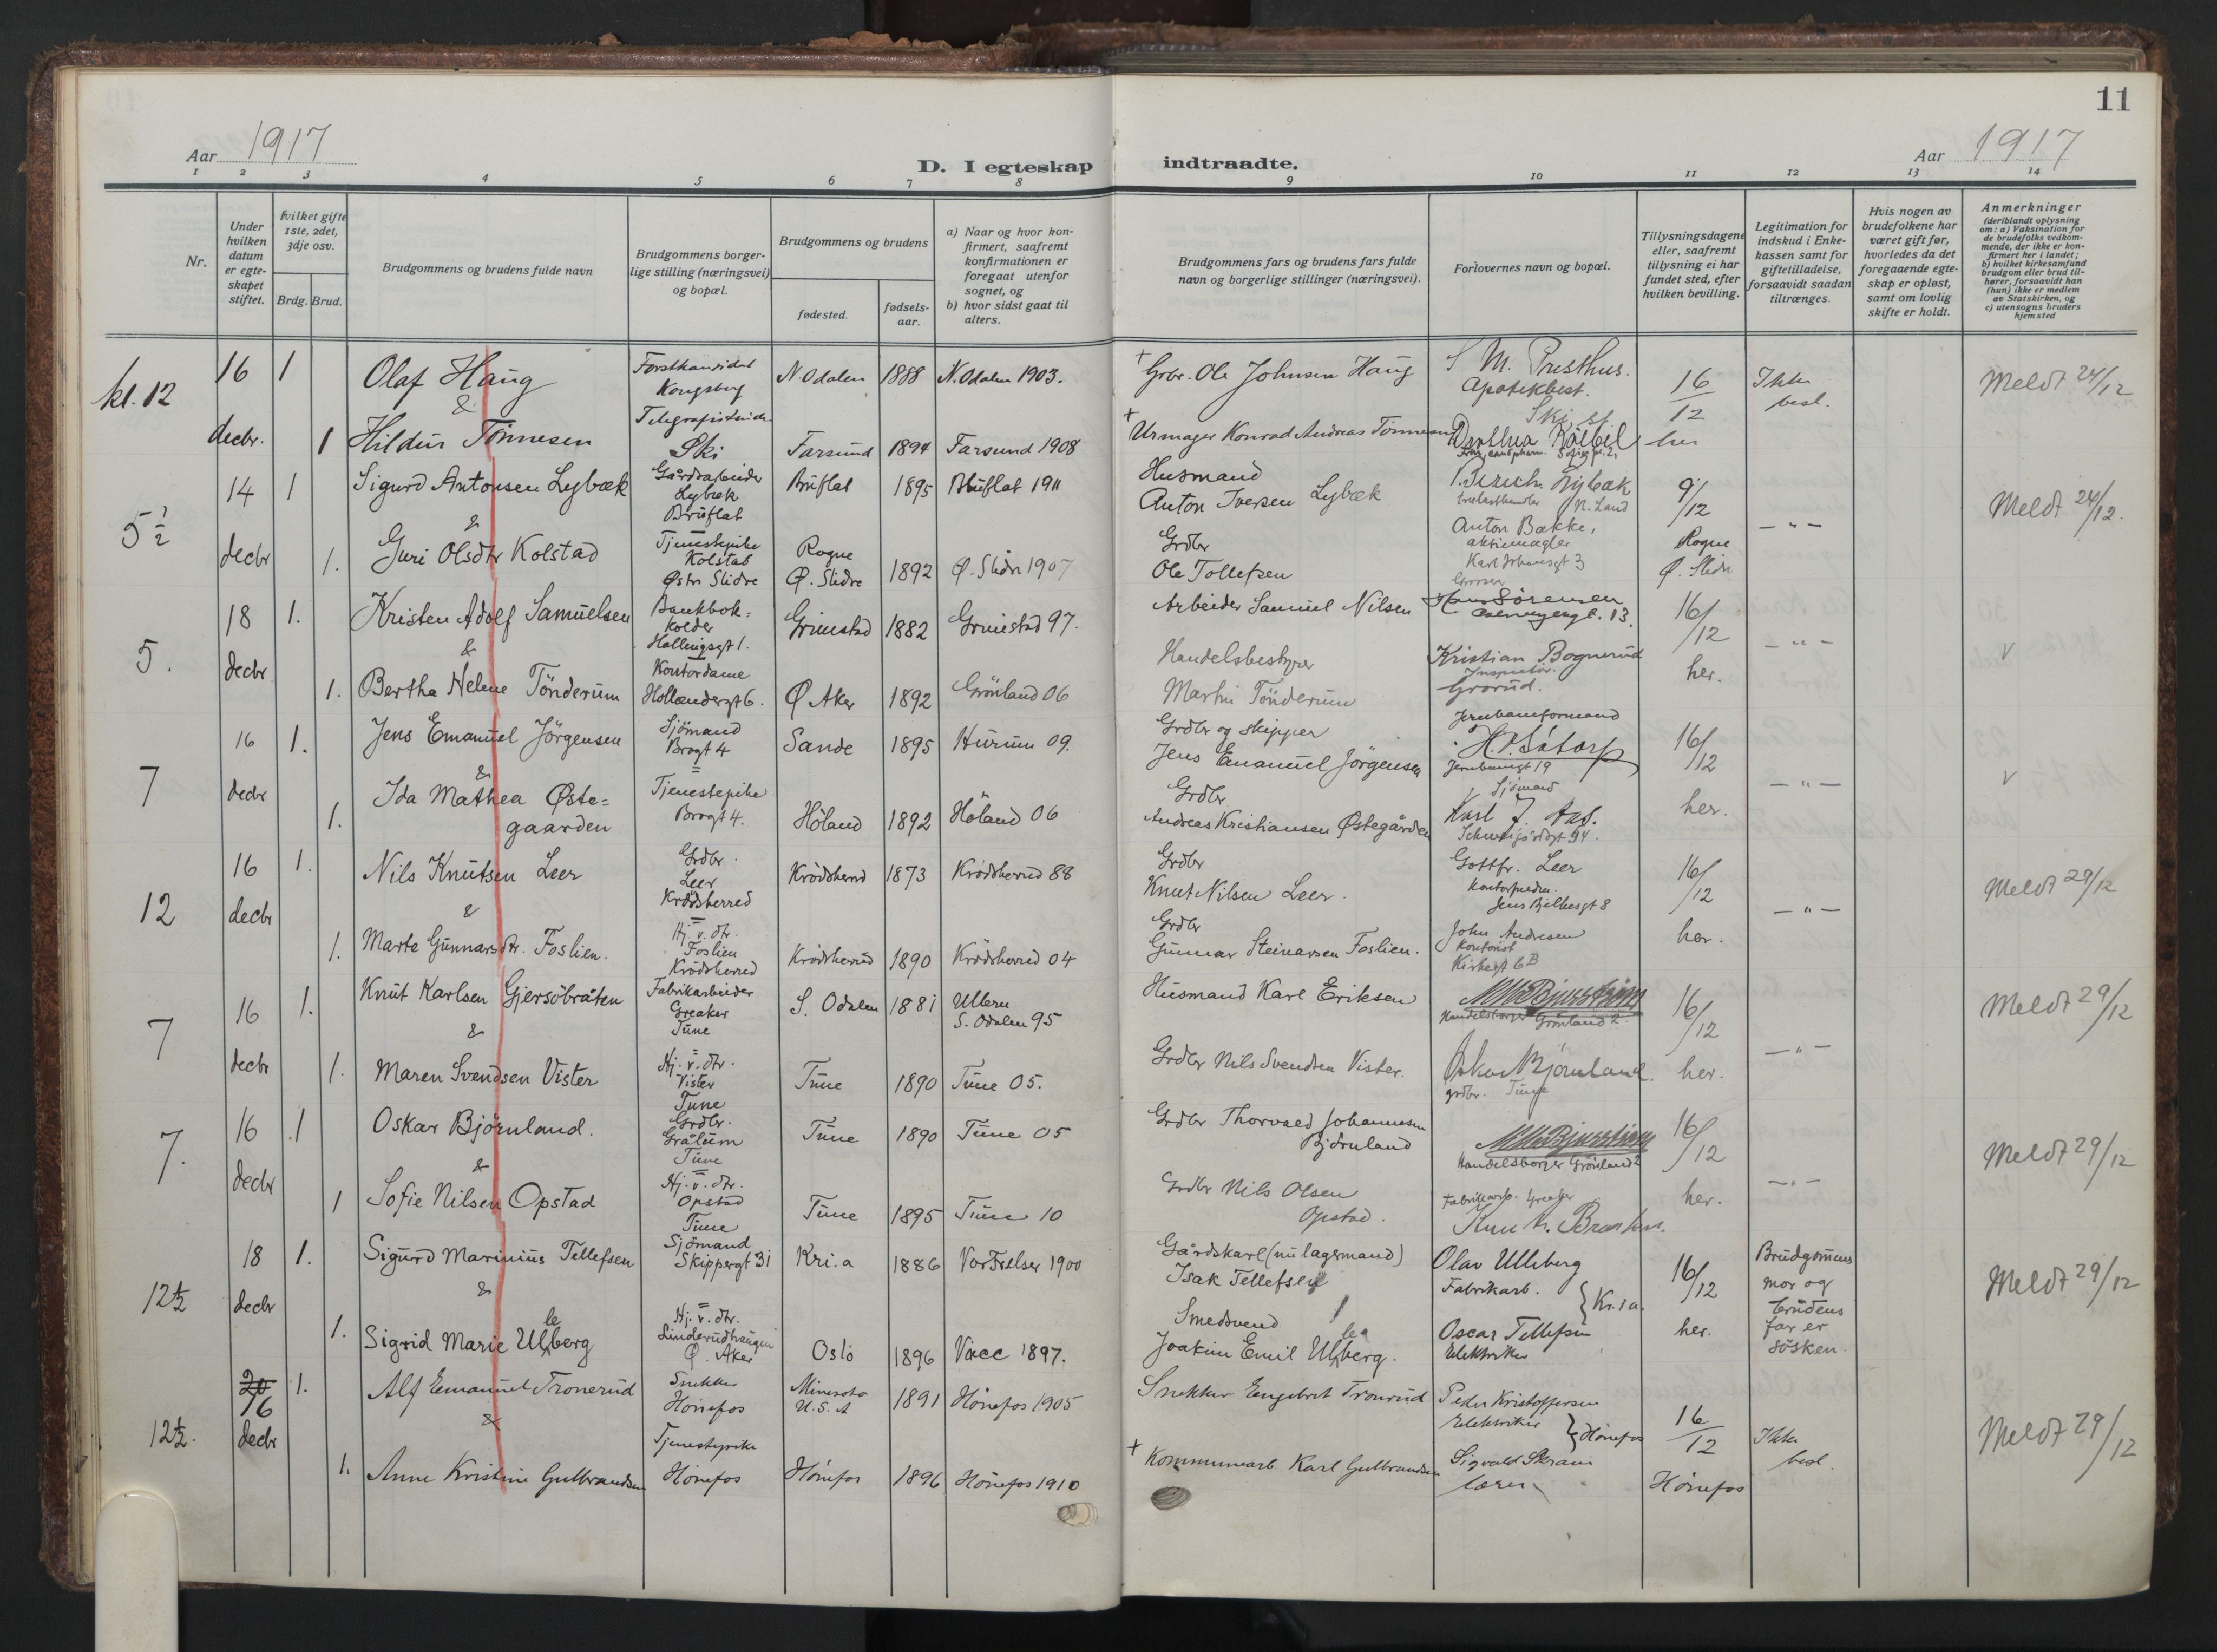 11
Aar 1917
D. I egteskap indtraadte.
Aar 1917
1 2 3 4 5 6 7 8 9 10 11 12 13 14
Nr.
Under hvilken datum er egteskapet stiftet.
hvilket gifte 1ste, 2det, 3dje osv.
Brdg. Brud.
Brudgommens og brudens fulde navn
Brudgommens borgerlige stilling (næringsvei) og bopæl.
Brudgommens og brudens
fødested.
fødsels-aar.
a) Naar og hvor konfirmert, saafremt konfirmationen er foregaat utenfor sognet, og
b) hvor sidst gaat til alters.
Brudgommens fars og brudens fars fulde navn og borgerlige stillinger (næringsvei).
Forlovernes navn og bopæl.
Tillysningsdagene eller, saafremt tillysning ei har fundet sted, efter hvilken bevilling.
Legitimation for indskud i Enkekassen samt for giftetilladelse, forsaavidt saadan tiltrænges.
Hvis nogen av brudefolkene har været gift før, hvorledes da det foregaaende egteskap er opløst, samt om lovlig skifte er holdt.
Anmerkninger
(deriblandt oplysning om: a) Vaksination for de brudefolks vedkommende, der ikke er konfirmert her i landet;
b) hvilket kirkesamfund brudgom eller brud tilhører, forsaavidt han (hun) ikke er medlem av Statskirken, og
c) utensogns bruders hjemsted
kl. 12
16 decbr. 1 Olaf Haug Forstkandidat Kongsberg N. Odalen 1888 N. Odalen 1903. + Grbr. Ole Johnsen Haug S M. Presthus. Apotekbest. Ski st 16/12 Ikke besl. Meldt 24/12
&
1 Hildur Tönnesen Telegrafistinde Ski Farsund 1894 Farsund 1908 + Urmager Konrad Andreas Tönnesen her
5 1/2
14 decbr 1 Sigurd Antonsen Lybæk Gårdsarbeider Lybæk Bruflat Bruflat 1895 Bruflat 1911 Husmand Anton Iversen Lybæk Lybæk N. Land 9/12 — " — Meldt 24/12.
&
1. Guri Olsdtr Kolstad Tjenestepike Kolstad Østr Slidre Rogne Ø. Slidre 1892 Ø. Slidr 1907 Grdbr Ole Tollefsen Anton Bakke, aktiemægler Karl Johansgt 3 Rogne Ø. Slidr
5.
18 decbr 1. Kristen Adolf Samuelsen Bankbokholder Hollingsgt 1. Grimstad 1882 Grimstad 97. Arbeider Samuel Nilsen Sörensen 13. 16/12 — " — v
&
1. Bertha Helene Tönderum Kontordame Hollendergt 6. Ø Aker 1892 Grönland 06 Handelsbestyrer Martin Tönderum Kristian Bognerud Inspektör. Grorud. her.
7
16 decbr 1. Jens Emanuel Jörgensen Sjömand Brogt 4 Sande 1895 Hurum 09. Grdbr og skipper Jens Emanuel Jörgensen Jernbaneformand H. P. Såtorp Jernbanegt 19 16/12 — " — v
&
1. Ida Mathea Øste=gaarden Tjenestepike Brogt 4. Höland 1892 Höland 06 Grdbr Andreas Kristiansen Østegården Sjömand Karl J. Aas. Schweigårdsgt 94. her.
12
16 decbr 1. Nils Knutsen Leer Grdbr. Leer Krödsherred Krödsherred 1873 Krödsherred 88 Grdbr Knut Nilsen Leer. Gottfr. Leer Jens Bjelkesgt 8 16/12 — " — Meldt 29/12
&
1. Marte Gunnarsdtr. Foslien. Hj. v. dtr. Foslien Krödsherred Krödsherred 1890 Krödsherred 04 Grdbr Gunnar Steinarsen Foslien. John Andresen Kontorist Kirkegt 6B her.
7
16 decbr 1. Knut Karlsen Gjersöbråten Fabrikarbeider Greaker Tune S. Odalen 1881 Ullern S. Odalen 95 Husmand Karl Eriksen Handelsborger Grönland 2. 16/12 — " — Meldt 29/12
&
1. Maren Svendsen Vister Hj. v. dtr. Vister Tune Tune 1890 Tune 05. Grdbr Nils Svendsen Vister. Oskar Björnland. grdbr. Tune her.
7.
16 decbr 1 Oskar Björnland. Grdbr. Grålum Tune Tune 1890 Tune 05 Grdbr Thorvald Johannesen Björnland Handelsborger Grönland 2 16/12 — " — Meldt 29/12
&
1 Sofie Nilsen Opstad Hj. v. dtr. Opstad Tune Tune 1895 Tune 10 Grdbr Nils Olsen Opstad. Fabrikarb. Greaker her.
12 1/2
18 decbr 1. Sigurd Marinius Tellefsen Sjömand Skippergt 31 Kri.a 1886 Vor Frelser 1900 Gårdskarl (nu lagermand) Isak Tellefsen Olav Ulleberg Fabrikarb. } Kr.ia. 16/12 Brudgommens mor og brudens far er sösken. Meldt 29/12
&
1. Sigrid Marie Ulleberg Hj. v. dtr. Linderudhaugen Ø. Aker Oslo 1896 Vacc 1897. Smedsvend Joakim Emil Ulleberg. Oscar Tellefsen Elektriker her.
12 1/2.
20 16 decbr 1. Alf Emanuel Tronerud Snekker Hönefos Minesota U.S.A 1891 Hönefos 1905 Snekker Engebret Tronrud Peder Kristoffersen Elektriker } Hönefos 16/12 Ikke besl. Meldt 29/12
&
1. Anne Kristine Gulbrandsen Tjenestepike Hönefos Hönefos 1896 Hönefos 1910 + Kommunearb. Karl Gulbrandsen Sigvald Skram lærer Hönefos